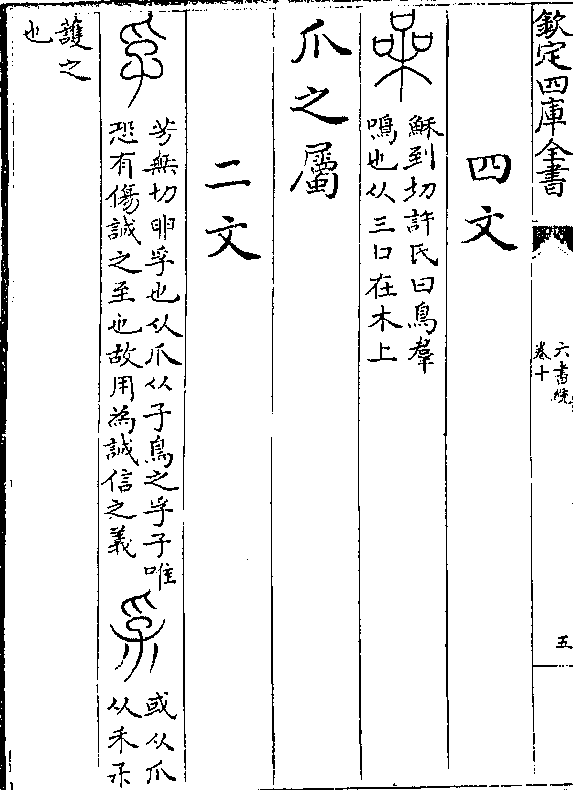 欽定四庫全書
六書統
卷十
五
四文
喿
穌到切許氏曰鳥羣
鳴也从三口在木上
爪之屬
二文
孚
芳無切卵孚也从爪从子鳥之孚子唯
恐有傷誠之至也故用為誠信之義
或从爪
从
護之
也